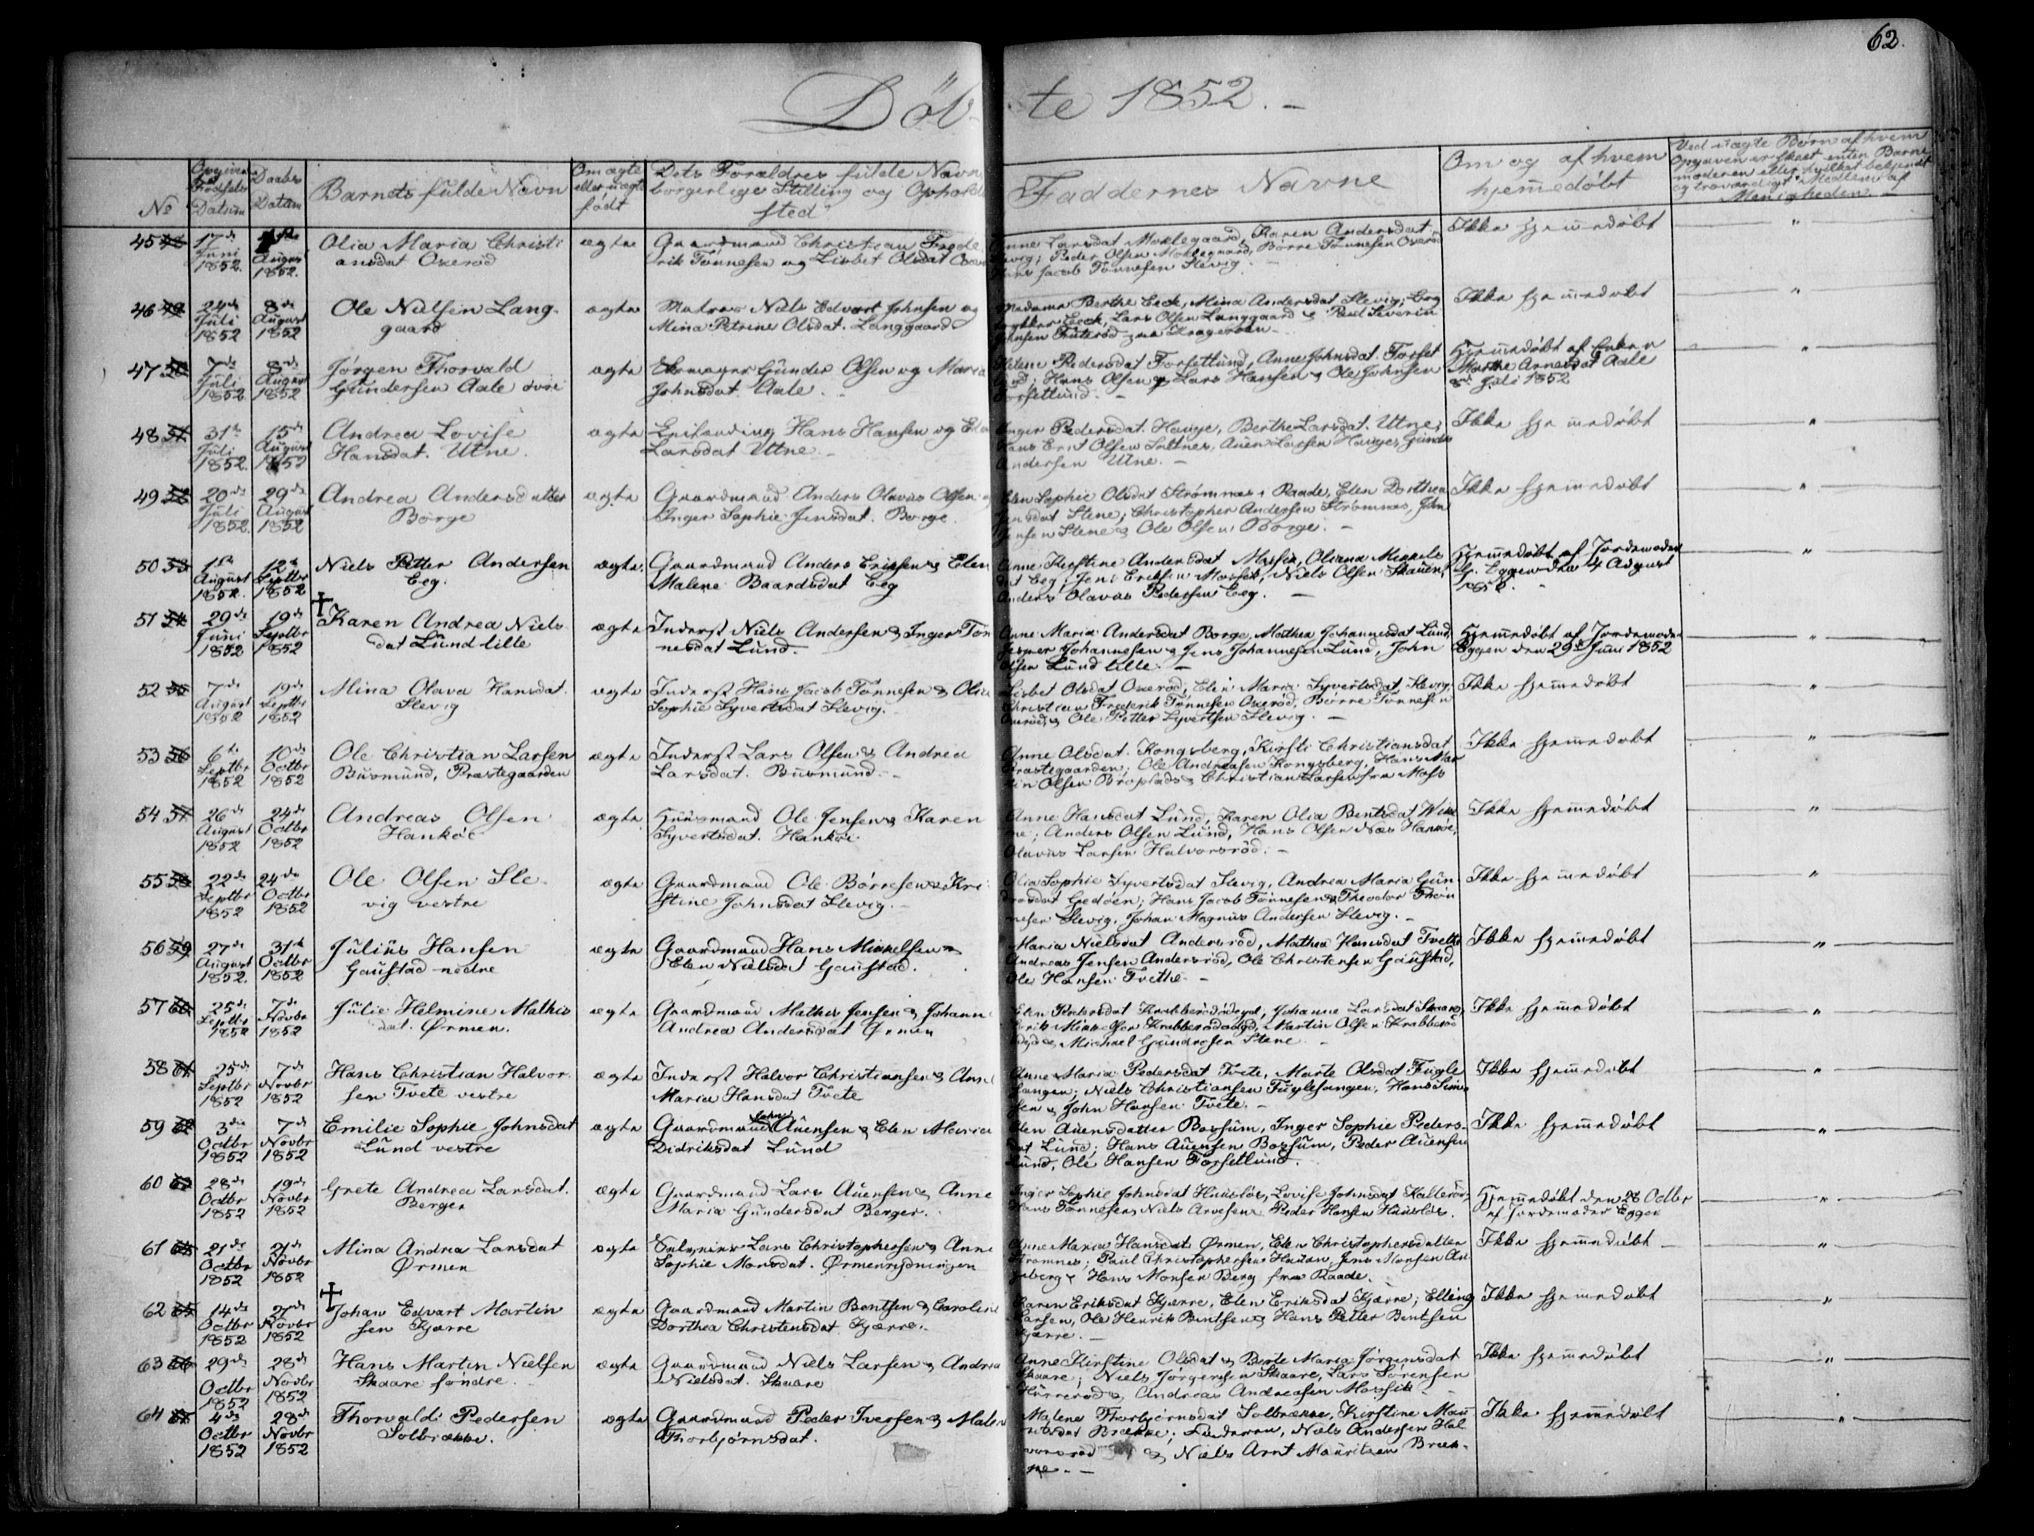 62.
Döbte 1852. –
No
Opgiven Födsels Datum
Daabs Datum
Barnets fulde Navn
Om ægte eller uægte födt
Dets Forældres fulde Navn borgerlige Stilling og Opholdsted
Faddernes Navne
Om og af hvem hjem̄edöbt
Ved uægte Börn af hvem Opgaven er skeet enten Barnemoderen eller hvilket bekjendt og troværdigt Medlem af Menigheden
45 17de Juni 1852. August 1852.
Olia Maria Christiansdat Oxeröd
ægte
Gaardmand Christian Frederik Tönnesen og Lisbet Olsdat
Anne Larsdat Moxlegaard, Karen Andersdat Slevig; Peder Olsen Moxlegaard, Börre Tönnesen Oxeröd
Hans Jacob Tönnesen Slevig.
Ikke hjem̄edöbt
46 24de Juli 1852 8de August 1852
Ole Nielsen Langgaard
ægte
Matros Niels Edvart Johnsen og
Mina Petrine Olsdat. Langgaard
Madame Berthe Eeck, Mina Andersdat Slevig;
Eeck, Lars Olsen Langgaard & Paul Severin
Johnsen fra Krageröen
Ikke hjem̄edöbt
47 7de Juli 1852 8de August 1852
Jörgen Thorvald
Gundersen Aale övre
ægte
Gunder Olsen og Maria
Johnsdat. Aale.
Helene Pedersdat Torsetlund, Anne Johnsdat. Torsetlund; Hans Olsen & Lars Hansen & Ole Johnsen
Torsetlund.
Hjem̄edöbt af Enken
Marthe Arnesdat Aale
Juli 1852
48 31te Juli 1852. 15de August 1852
Andrea Lovise
Hansdat. Utne.
ægte
Hans Hansen og
Larsdat Utne
Inger Pedersdat. Hauge, Berthe Larsdat. Utne;
Hans Erit Olsen Saltnes, Auen Larsen Hauge, Gunder
Andersen Utne.
Ikke hjem̄edöbt
49 20de Juli 1852. 29de August 1852
Andrea Andersdatter
Borge
ægte
Gaardmand Anders Olavus Olsen
Inger Sophie Jensdat. Borge.
Elen Sophie Olsdat Strömnes i Raade, Elen Dorthea
Jensdat Stene; Christopher Andersen Strömnes, John
Jensen Stene & Ole Olsen Borge.
Ikke hjem̄edöbt
50 1ste August 1852. 12te Septbr 1852
Niels Petter Andersen
Eeg.
ægte.
Gaardmand Anders Ericsen & Elen
Malene Baardsdat Eeg
Anne Kirstine Andersdat Mossik, Oliana Mikkelsdat Eeg; Jens Eriksen Mossik, Niels Olsen Skauen,
Anders Olavus Pedersen Eeg.
Hjem̄edöbt af Jordemoder
Eggen den 4 August
1852.
51 29de Juni 1852 19de Septbr 1852
†Karen Andrea Nielsdat Lund lille
ægte
Inderst Niels Andersen & Inger Tönnesdat Lund.
Anne Maria Andersdat Borge, Mathea Johannesdat Lund,
Jesper Johannesen & Jens Johannesen Lund, John
Olsen Lund lille.
Hjem̄edöbt af Jordemoder
Eggen den 29de Juni 1852
52 7de August 1852 19de Septbr 1852
Mina Olava Hansdat.
Slevig
ægte
Inderst Hans Jacob Tönnesen &
Sophie Syvertsdat Slevig.
Lisbet Olsdat Oxeröd; Elen Maria Syvertsdat Slevig;
Christian Frederik Tönnesen Oxeröd, Börre Tönnesen
Oxeröd, & Ole Petter Syvertsen Slevig.
Ikke hjem̄edöbt
53 6te Septbr 1852 10de Octbr 1852
Ole Christian Larsen
Busmund, Præstegaarden
ægte
Inderst Lars Olsen & Andrea
Larsdat. Busmund.
Anne Olsdat. Kongsberg, Kirsti Christiansdat
Præstegaarden; Ole Andreasen Kongsberg, Hans Martin Olsen & Christian Larsen fra Moss
Ikke hjem̄edöbt
54 26de August 1852 24de Octbr 1852
Andreas Olsen
Hankö
ægte
Huusmand Ole Jensen & Karen
Syvertsdat. Hankö.
Anne Hansdat Lund, Karen Olia Bentsdat; Anders Olsen Lund, Hans Olsen Næs Hankö,
Olavus Larsen Halvorsröd.
Ikke hjem̄edöbt
55 22de Septbr 1852 24de Octbr 1852
Ole Olsen Slevig vestre
ægte
Gaardmand Ole Börresen & Kristine Johnsdat Slevig.
Olia Sophie Syvertsdat Slevig, Andrea Maria Gundrosdat Gedöen; Hans Jacob Tönnesen & Theodor Thönnesen Slevig, Johan Magnus Andersen Slevig.
Ikke hjem̄edöbt
56 27de August 1852. 31te Octbr 1852
Julius Hansen
Gaustad nedre
ægte
Gaardmand Hans Mikkelsen &
Elen Nielsdat Gaustad.
Maria Nielsdat Andersröd, Mathea Hansdat Tvete
Andreas Jensen Andersröd, Ole Christensen Gaustad,
Ole Hansen Tvethe.
Ikke hjem̄edöbt
57 25de Septbr 1852 7de Novbr 1852
Julie Helmine Mathisdat. Ørmen.
ægte
Gaardmand Mathis Jensen & Johanne
Andrea Andersdat Ørmen
Elen Pedersdat Krabberödegd, Johanne Larsdat Skaare,
Erik Mikkelsen Krabberödegd, Martin Olsen Krabberödegd & Michael Gundrosen Stene
Ikke hjem̄edöbt
58 25de Septbr 1852 7de Novbr 1852
Hans Christian Halvorsen Tvete vestre
ægte
Inderst Halvor Christiansen & Anne
Maria Hansdat Tvete
Anne Maria Pedersdat Tvete, Marte Olsdat Fuglesangen; Niels Christiansen Fuglesangen, Hans Simensen & John Hansen Tvete.
Ikke hjem̄edöbt
59 3die Octbr 1852 7de Novbr 1852
Emilie Sophie Johnsdat
Lund vestre
ægte
Gaardmand John Auensen & Elen Maria
Didriksdat Lund
Elen Auensdatter Bossum, Inger Sophie Pedersdat Lund; Hans Auensen Bossum, Peder Auensen
Lund, Ole Hansen Torsetlund.
Ikke hjem̄edöbt
60 28de Octbr 1852 19de Novbr 1852
Grete Andrea Larsdat.
Berger
ægte
Gaardmand Lars Auensen & Anne
Maria Gundersdat Berger.
Inger Sophie Johnsdat Huuslös, Lovise Johnsdat Kalleröd,
Hans Tönnesen, Niels Arvesen & Peder Hansen Huuslös.
Hjem̄edöbt den 28 Octbr
af Jordemoder Eggen
61 21de Octbr 1852 21de Novbr 1852
Mina Andrea Larsdat
Ørmen
ægte
Selveier Lars Christophersen & Anne
Sophie Monsdat. Ørmenrydningen
Anne Maria Hansdat Ørmen, Elen Christophersdatter
Strömnes; Paul Christophersen Haugen, Jens Monsen & Hans Monsen Berg fra Raade.
Ikke hjem̄edöbt
62 14de Octbr 1852 21de Novbr 1852
†Johan Edvart Martinsen Kjærre
ægte
Gaardmand Martin Bentsen & Caroline
Dorthea Christensdat Kjærre.
Karen Eriksdat Kjærre, Elen Eriksdat Kjærre; Elling
Larsen, Ole Henrik Bentsen & Hans Petter Bentsen
Kjærre.
Ikke hjem̄edöbt
63 29de Octbr 1852 28de Novbr 1852
Hans Martin Nielsen
Skaare söndre.
ægte
Gaardmand Niels Larsen & Andrea
Nielsdat. Skaare
Anne Kirstine Olsdat & Berte Maria Jörgensdat
Skaare; Niels Jörgensen Skaare, Lars Sörensen
& Andreas Andreasen Mossik
Ikke hjem̄edöbt
64 4de Octbr 1852 28de Novbr 1852
Thorvald Pedersen
Solbrække.
ægte
Gaardmand Peder Iversen & Malene
Thorbjörnsdat.
Malene Thorbjörnsdat Solbrække, Kirstine Mauritsdat Brække; Faderen, Niels Andersen Halvorsröd & Niels Arnt Mauritsen Brække.
Ikke hjem̄edöbt